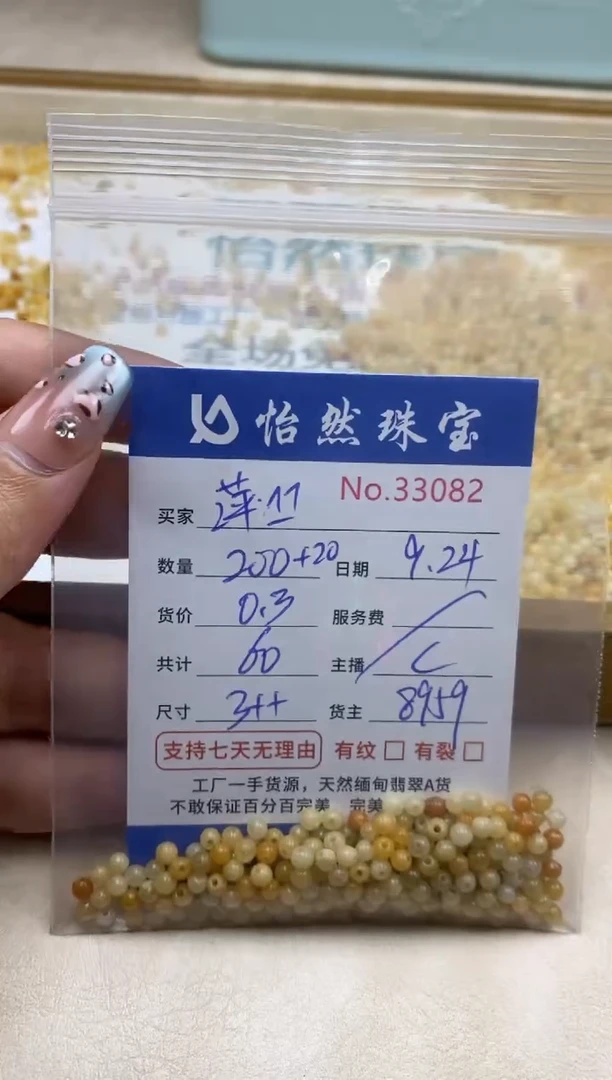 怡然珠宝
No.33082
买家
数量 200+20 日期 9.24
货价 0.3 服务费 /
共计 60 主播 C
尺寸 3++ 货主 8959
支持七天无理由 有纹 □ 有裂 □
工厂一手货源，天然缅甸翡翠A货
不敢保证百分百完美 完美